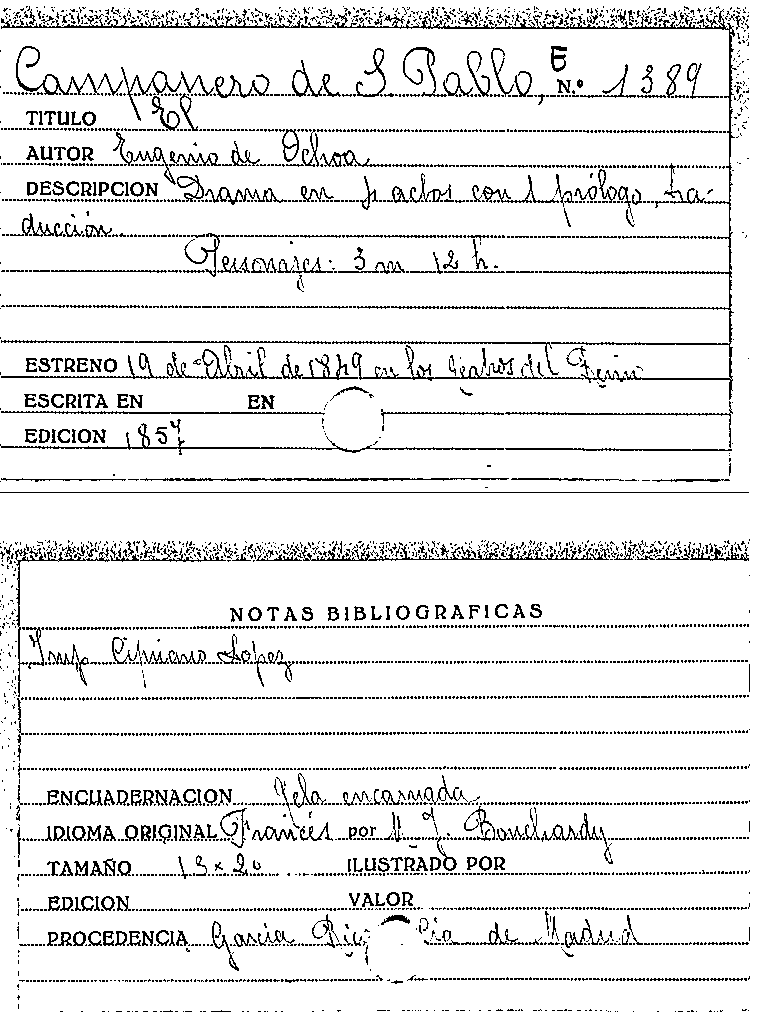 Campanero de S. Pablo, E N.º 1389
TITULO El
AUTOR Eugenio de Ochoa
DESCRIPCION Drama en 4 actos con 1 prólogo, tra-
ducción.
Personajes: 3 m 12 h.
ESTRENO 19 de Abril de 1849 en los teatros del
ESCRITA EN EN
EDICION 1857
NOTAS BIBLIOGRAFICAS
Imp Cipriano Lopez
ENCUADERNACION Tela encarnada
IDIOMA ORIGINAL Francés por M. J. Bouchardy
TAMAÑO 13 x 20 ILUSTRADO POR
EDICION VALOR
PROCEDENCIA Garcia de Madrid